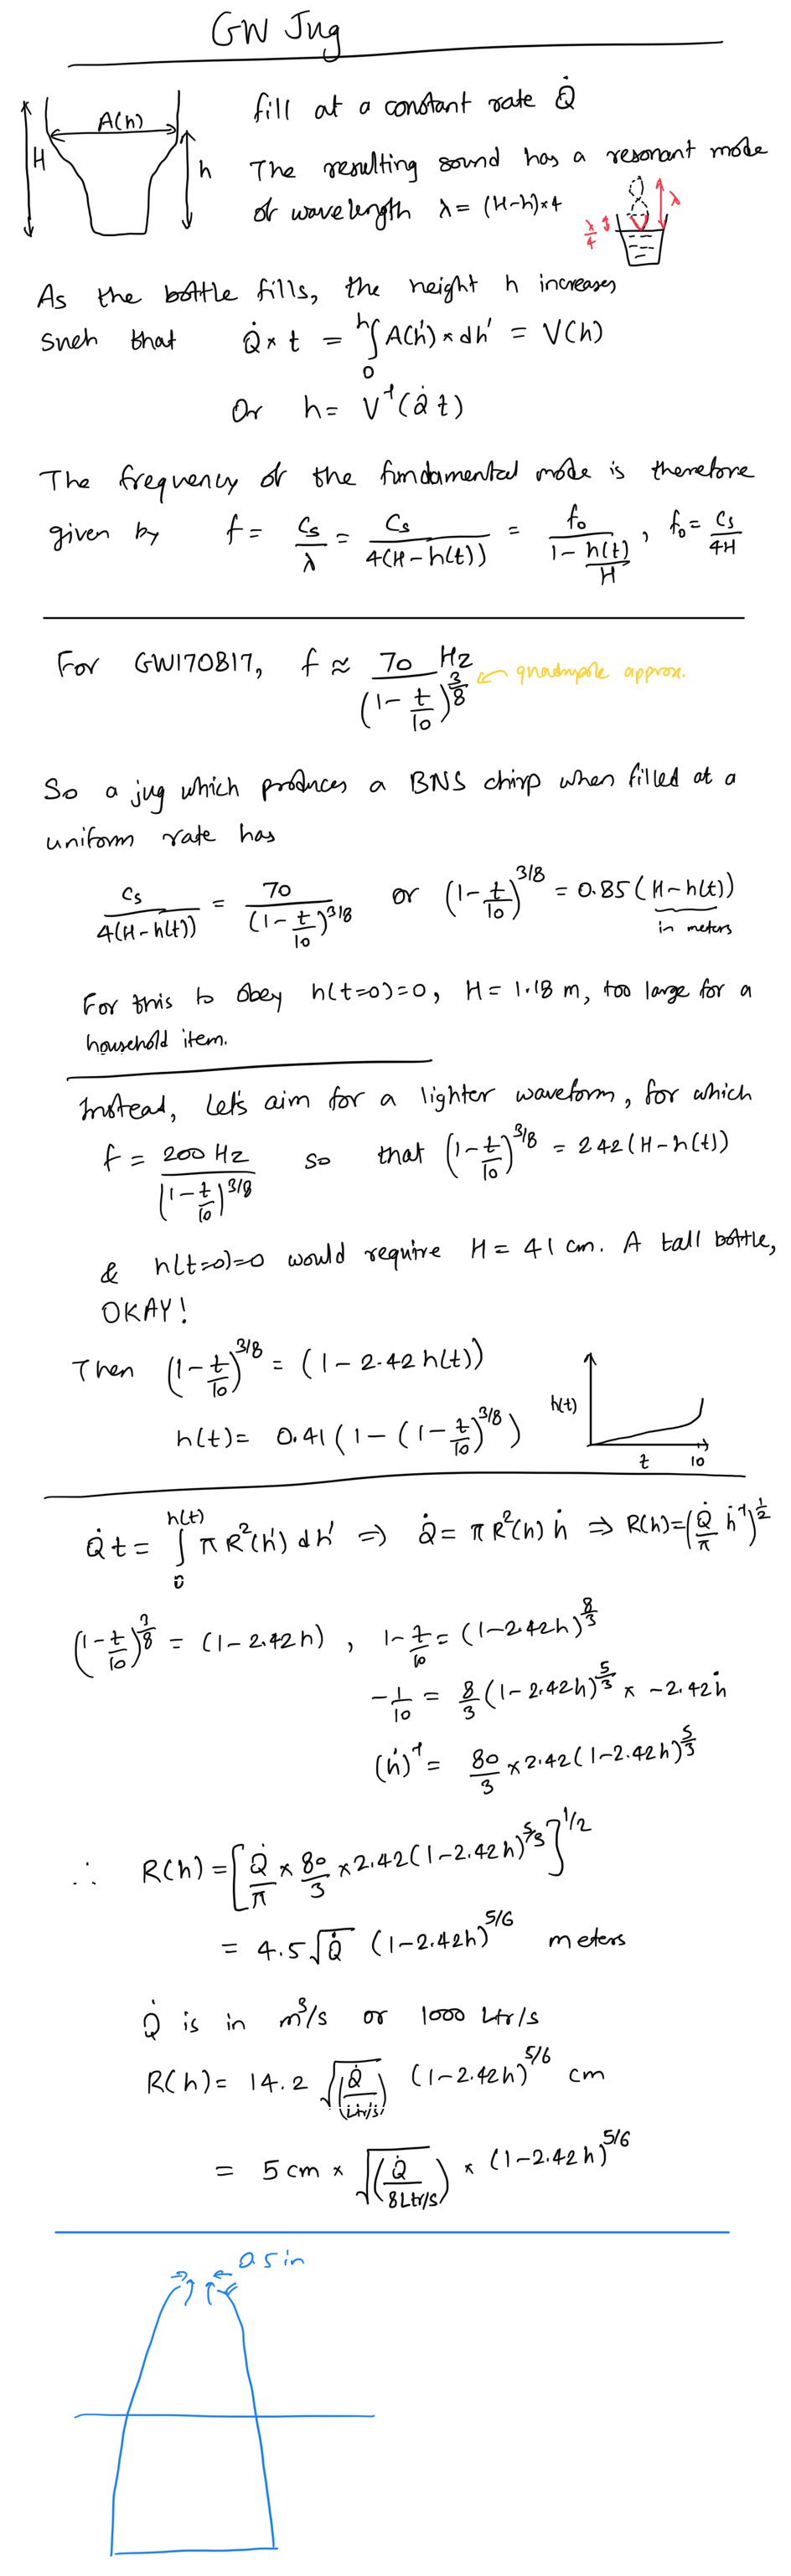 GW Jug
A(h)
H
h
fill at a constant rate Q̇
The resulting sound has a resonant mode
of wavelength λ = (H-h)×4
λ
λ/4
As the bottle fills, the height h increases
such that Q̇ × t = ∫₀ʰ A(h') × dh' = V(h)
Or h = V⁻¹(Q̇ t)
The frequency of the fundamental mode is therefore
given by f = Cs/λ = Cs/4(H-h(t)) = f₀/(1 - h(t)/H) , f₀ = Cs/4H
For GW170817, f ≈ 70 Hz/(1 - t/10)^(3/8) ← quadrupole approx.
So a jug which produces a BNS chirp when filled at a
uniform rate has
Cs/4(H-h(t)) = 70/(1 - t/10)^(3/8) or (1 - t/10)^(3/8) = 0.85 (H-h(t))
in meters
For this to obey h(t=0)=0, H = 1.18 m, too large for a
household item.
Instead, let's aim for a lighter waveform, for which
f = 200 Hz/(1 - t/10)^(3/8) so that (1 - t/10)^(3/8) = 2.42 (H-h(t))
& h(t=0)=0 would require H = 41 cm. A tall bottle,
OKAY!
Then (1 - t/10)^(3/8) = (1 - 2.42 h(t))
h(t) = 0.41 (1 - (1 - t/10)^(3/8))
h(t)
t 10
Q̇ t = ∫₀^h(t) π R²(h') dh' ⇒ Q̇ = π R²(h) ḣ ⇒ R(h) = (Q̇/π ḣ⁻¹)^(1/2)
(1 - t/10)^(3/8) = (1 - 2.42h) , 1 - t/10 = (1 - 2.42h)^(8/3)
-1/10 = 8/3 (1 - 2.42h)^(5/3) × -2.42ḣ
(ḣ)⁻¹ = 80/3 × 2.42 (1 - 2.42h)^(5/3)
∴ R(h) = [Q̇/π × 80/3 × 2.42 (1 - 2.42h)^(5/3)]^(1/2)
= 4.5 √Q̇ (1 - 2.42h)^(5/6) meters
Q̇ is in m³/s or 1000 Ltr/s
R(h) = 14.2 √(Q̇/(Ltr/s)) (1 - 2.42h)^(5/6) cm
= 5 cm × √(Q̇/8 Ltr/s) × (1 - 2.42h)^(5/6)
0.5 in